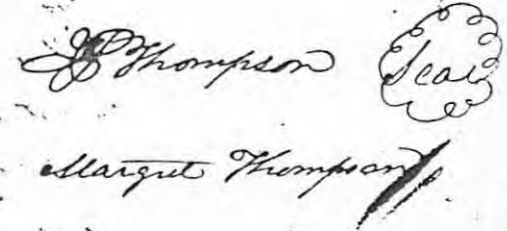 JP Thompson Seal
Margret Thompson